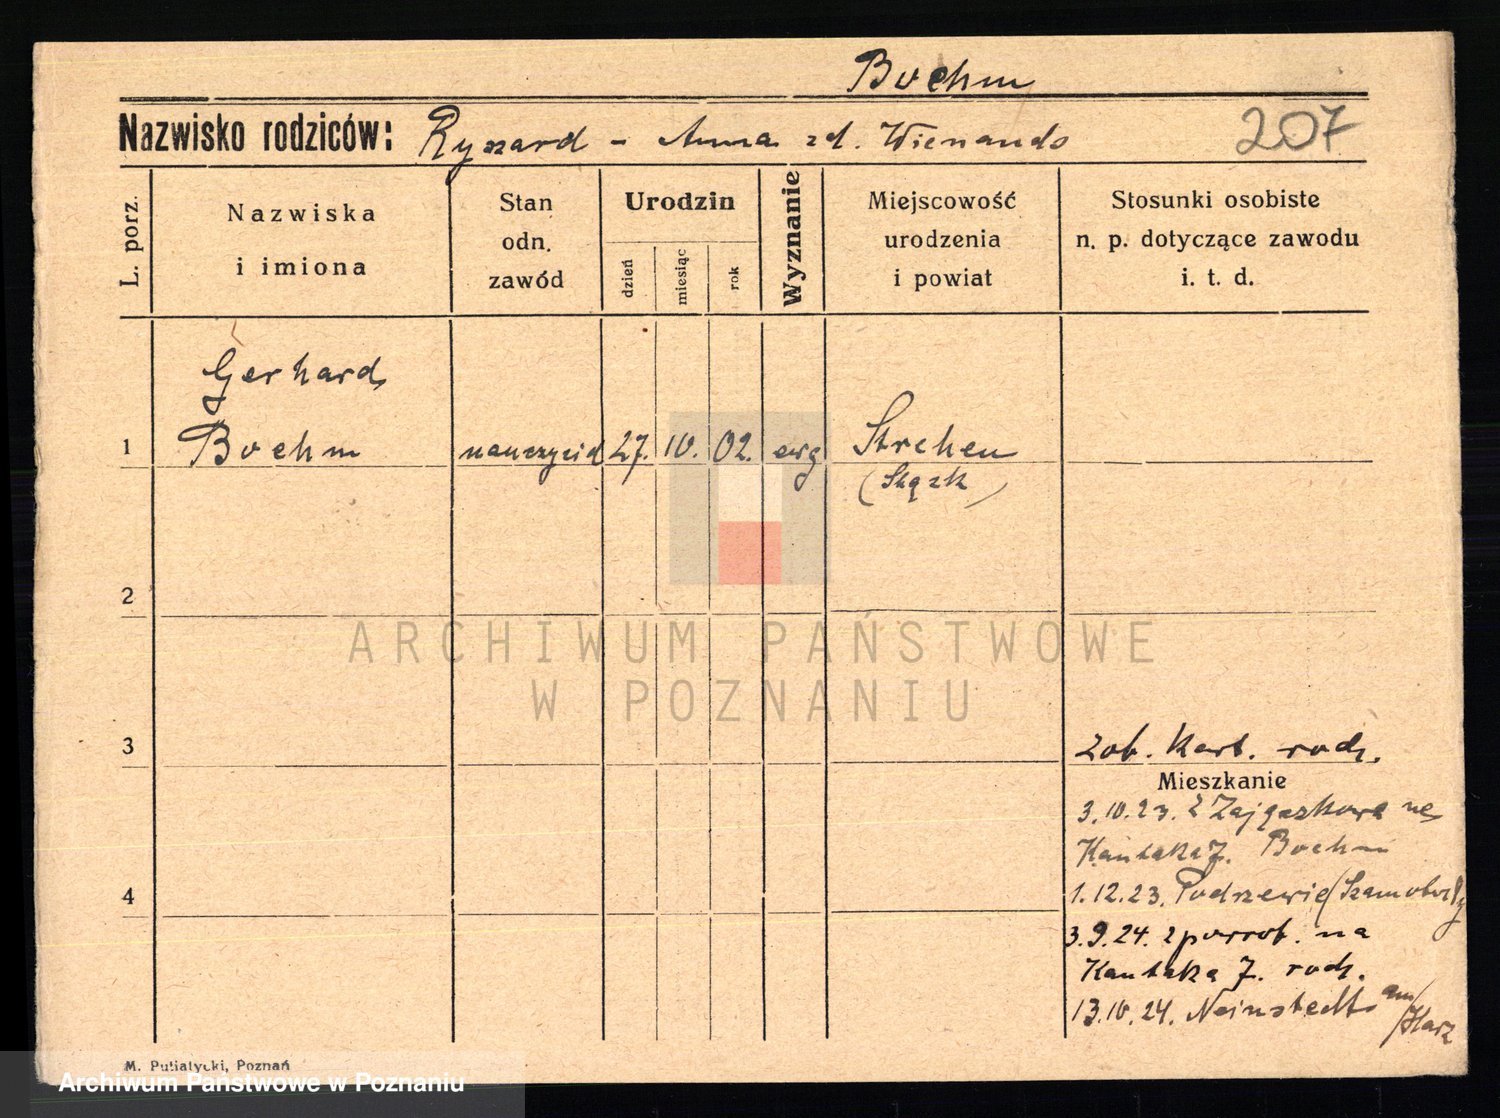 Boehm
Nazwisko rodziców: Ryszard - Anna zd. Wienands 207
L. porz.
Nazwiska
i imiona
Stan
odn.
zawód
Urodzin
dzień
miesiąc
rok
Wyznanie
Miejscowość
urodzenia
i powiat
Stosunki osobiste
n. p. dotyczące zawodu
i. t. d.
Gerhard
1 Boehm nauczyciel 27. 10. 02. ewg Strehen
(Śląsk)
2
ARCHIWUM PAŃSTWOWE
W POZNANIU
3 zob. Kart. rodz.
Mieszkanie
3.10.23. z na
Kantaka 7. Boehm
1.12.23. Podrzewie (Szamotuły
4
3.9.24. z powrot. na
Kantaka 7. rodz.
13.10.24. Neinstedt am/Harz
M. Putiatycki, Poznań
Archiwum Państwowe w Poznaniu